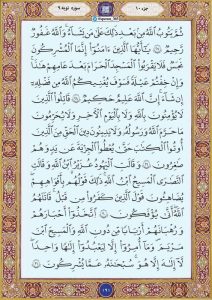 جزء ۱۰
سوره توبه ۹
ثُمَّ يَتُوبُ ٱللَّهُ مِنۢ بَعْدِ ذَٰلِكَ عَلَىٰ مَن يَشَآءُ وَٱللَّهُ غَفُورٌ
رَّحِيمٌ ۝٢٧ يَٰٓأَيُّهَا ٱلَّذِينَ ءَامَنُوٓا۟ إِنَّمَا ٱلْمُشْرِكُونَ
نَجَسٌ فَلَا يَقْرَبُوا۟ ٱلْمَسْجِدَ ٱلْحَرَامَ بَعْدَ عَامِهِمْ هَٰذَا
وَإِنْ خِفْتُمْ عَيْلَةً فَسَوْفَ يُغْنِيكُمُ ٱللَّهُ مِن فَضْلِهِۦٓ
إِن شَآءَ إِنَّ ٱللَّهَ عَلِيمٌ حَكِيمٌ ۝٢٨ قَٰتِلُوا۟ ٱلَّذِينَ
لَا يُؤْمِنُونَ بِٱللَّهِ وَلَا بِٱلْيَوْمِ ٱلْءَاخِرِ وَلَا يُحَرِّمُونَ
مَا حَرَّمَ ٱللَّهُ وَرَسُولُهُۥ وَلَا يَدِينُونَ دِينَ ٱلْحَقِّ مِنَ ٱلَّذِينَ
أُوتُوا۟ ٱلْكِتَٰبَ حَتَّىٰ يُعْطُوا۟ ٱلْجِزْيَةَ عَن يَدٍ وَهُمْ
صَٰغِرُونَ ۝٢٩ وَقَالَتِ ٱلْيَهُودُ عُزَيْرٌ ٱبْنُ ٱللَّهِ وَقَالَتِ
ٱلنَّصَٰرَى ٱلْمَسِيحُ ٱبْنُ ٱللَّهِ ذَٰلِكَ قَوْلُهُم بِأَفْوَٰهِهِمْ
يُضَٰهِـُٔونَ قَوْلَ ٱلَّذِينَ كَفَرُوا۟ مِن قَبْلُ قَٰتَلَهُمُ
ٱللَّهُ أَنَّىٰ يُؤْفَكُونَ ۝٣٠ ٱتَّخَذُوٓا۟ أَحْبَارَهُمْ
وَرُهْبَٰنَهُمْ أَرْبَابًا مِّن دُونِ ٱللَّهِ وَٱلْمَسِيحَ ٱبْنَ
مَرْيَمَ وَمَآ أُمِرُوٓا۟ إِلَّا لِيَعْبُدُوٓا۟ إِلَٰهًا وَٰحِدًا
لَّآ إِلَٰهَ إِلَّا هُوَ سُبْحَٰنَهُۥ عَمَّا يُشْرِكُونَ ۝٣١
۱۹۱